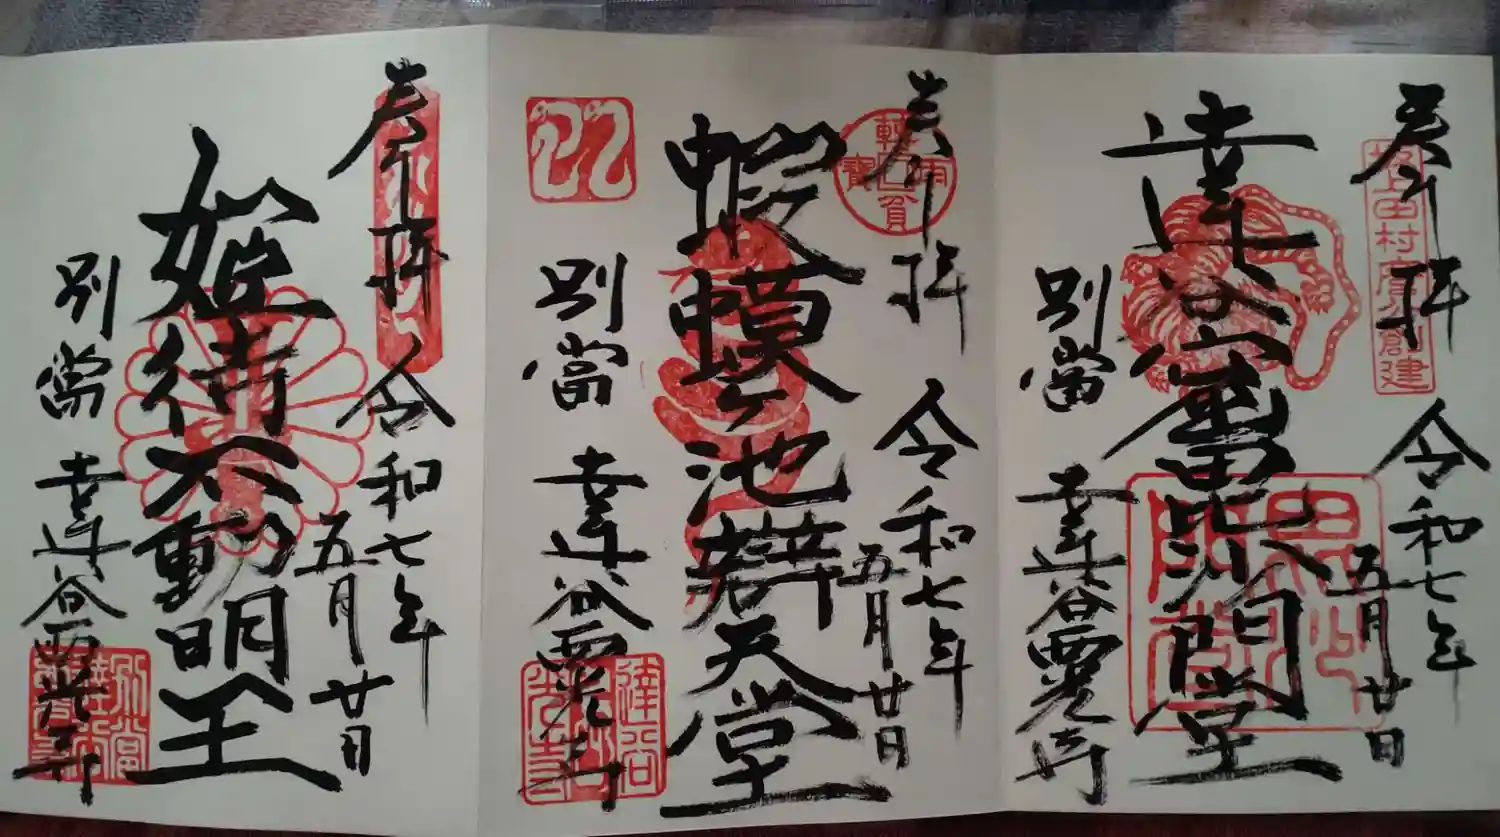 奉拝
令和七年
五月廿日
達谷窟毘沙門堂
別當
達谷西光寺
坂上田村麿創建
奉拝
令和七年
五月廿日
蝦蟆ヶ池辯天堂
別當
達谷西光寺
達谷西光寺
奉拝
令和七年
五月廿日
姫待不動明王
別當
達谷西光寺